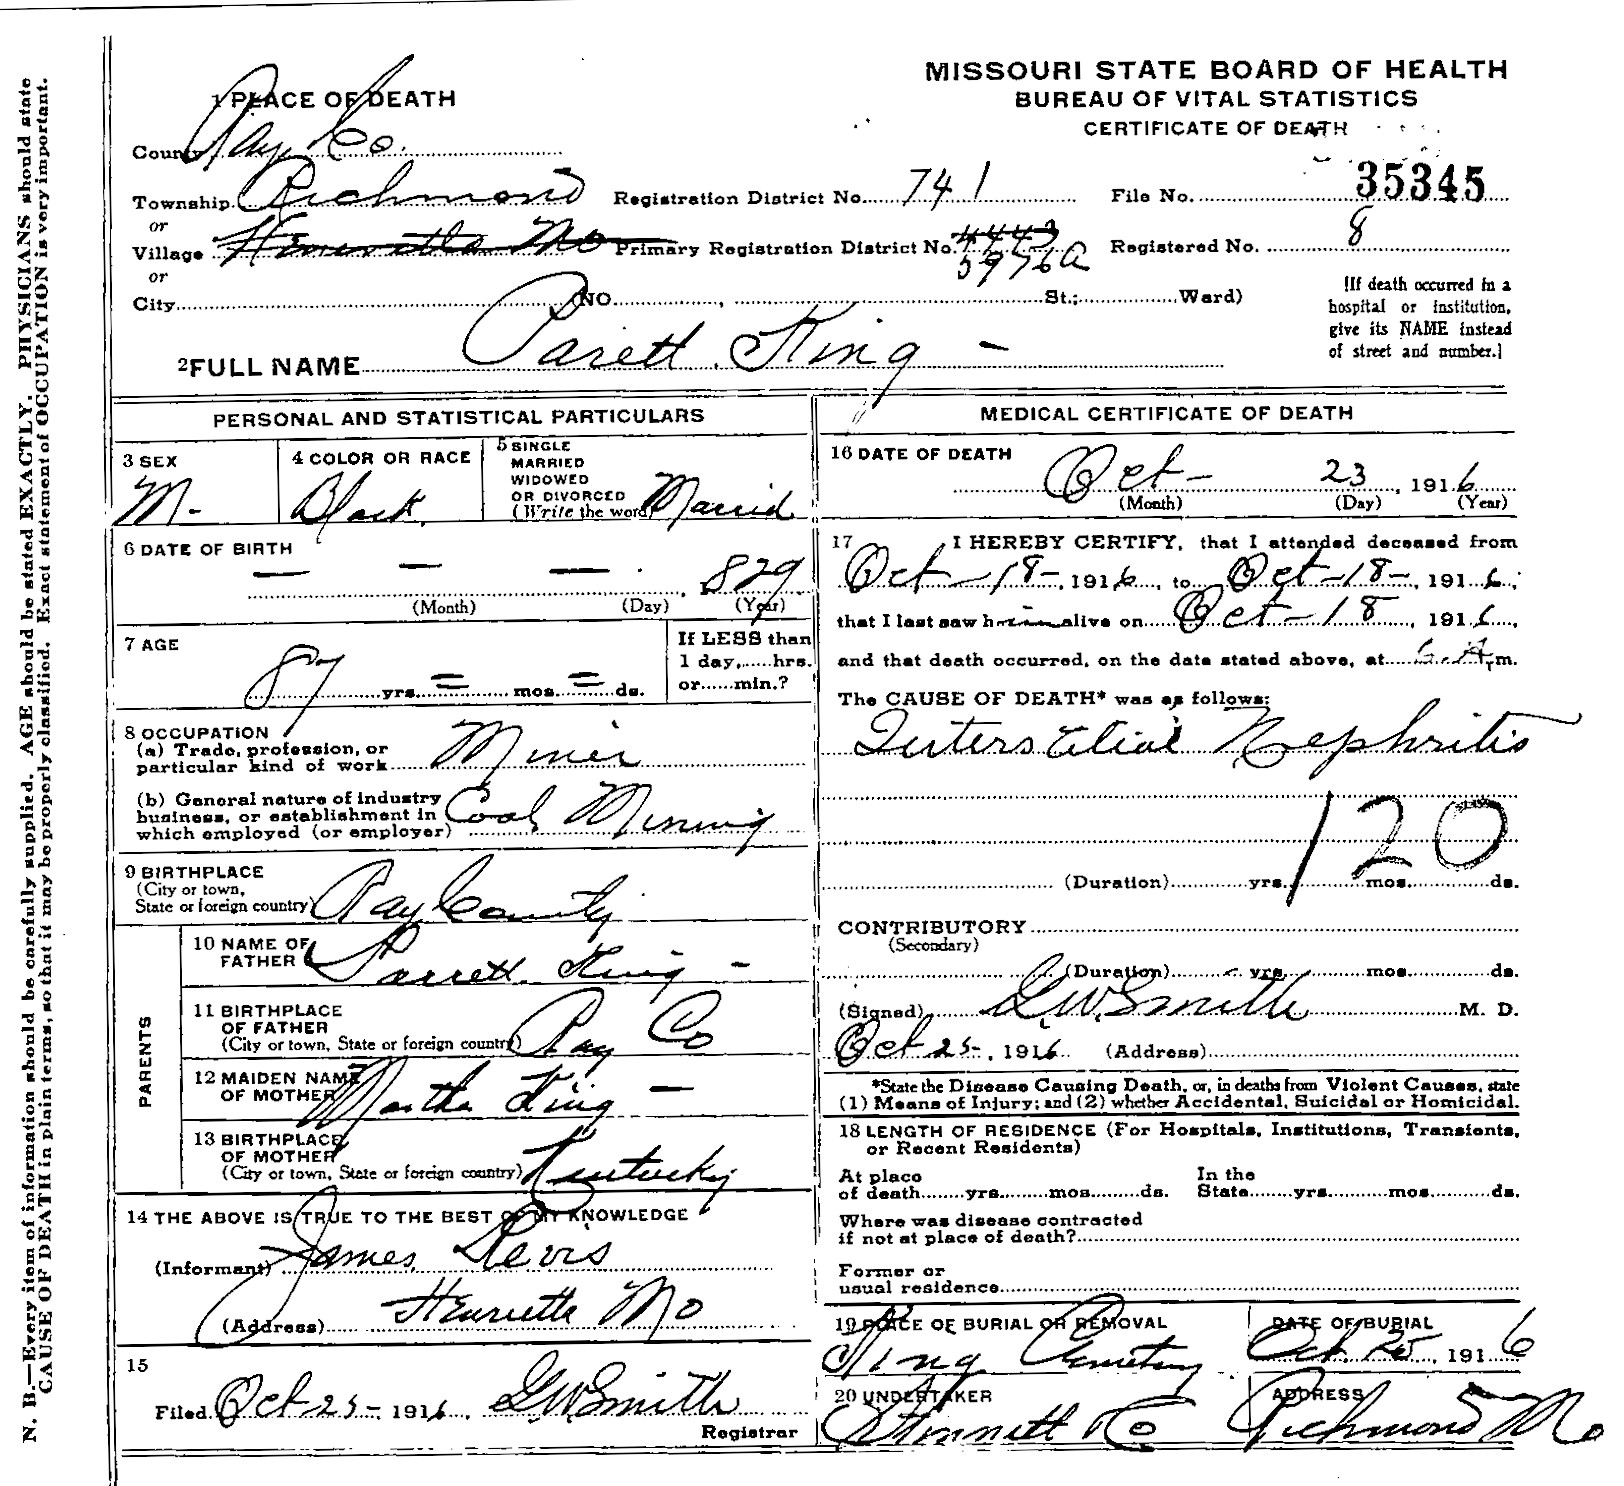 MISSOURI STATE BOARD OF HEALTH
BUREAU OF VITAL STATISTICS
CERTIFICATE OF DEATH
1 PLACE OF DEATH
County Ray Co.
Township Richmond Registration District No. 741 File No. 35345
or
Village Henrietta Mo Primary Registration District No. 4443 5976a Registered No. 8
or
City (NO. , St.; Ward)
[If death occurred in a
hospital or institution,
give its NAME instead
of street and number.]
2 FULL NAME Parett King -
PERSONAL AND STATISTICAL PARTICULARS
3 SEX
M-
4 COLOR OR RACE
Black
5 SINGLE
MARRIED
WIDOWED
OR DIVORCED
(Write the word) Married
6 DATE OF BIRTH
— — — . , 829
(Month) (Day) (Year)
7 AGE
87 yrs. = mos. = ds.
If LESS than
1 day,......hrs.
or......min.?
8 OCCUPATION
(a) Trade, profession, or
particular kind of work Miner
(b) General nature of industry
business, or establishment in
which employed (or employer) Coal Mining
9 BIRTHPLACE
(City or town,
State or foreign country) Ray County
PARENTS
10 NAME OF
FATHER Parrett King -
11 BIRTHPLACE
OF FATHER
(City or town, State or foreign country) Ray Co
12 MAIDEN NAME
OF MOTHER Martha King —
13 BIRTHPLACE
OF MOTHER
(City or town, State or foreign country) Kentucky
14 THE ABOVE IS TRUE TO THE BEST OF MY KNOWLEDGE
(Informant) James
(Address) Henrietta Mo
15
Filed Oct 25-, 1916, G.W. Smith
Registrar
MEDICAL CERTIFICATE OF DEATH
16 DATE OF DEATH
Oct- 23, 1916
(Month) (Day) (Year)
17 I HEREBY CERTIFY, that I attended deceased from
Oct-18-, 1916, to Oct-18-, 1916,
that I last saw him alive on Oct-18, 1916,
and that death occurred, on the date stated above, at 6 A. m.
The CAUSE OF DEATH* was as follows:
Interstitial Nephritis
120
(Duration) yrs. mos. ds.
CONTRIBUTORY
(Secondary)
(Duration) yrs. mos. ds.
(Signed) G.W. Smith M. D.
Oct 25-, 1916 (Address)
*State the Disease Causing Death, or, in deaths from Violent Causes, state
(1) Means of Injury; and (2) whether Accidental, Suicidal or Homicidal.
18 LENGTH OF RESIDENCE (For Hospitals, Institutions, Transients,
or Recent Residents)
At place In the
of death yrs. mos. ds. State yrs. mos. ds.
Where was disease contracted
if not at place of death?
Former or
usual residence
19 PLACE OF BURIAL OR REMOVAL
King Cemetery
DATE OF BURIAL
Oct. 25, 1916
20 UNDERTAKER
Co
ADDRESS
Richmond Mo
N. B.—Every item of information should be carefully supplied. AGE should be stated EXACTLY. PHYSICIANS should state
CAUSE OF DEATH in plain terms, so that it may be properly classified. Exact statement of OCCUPATION is very important.